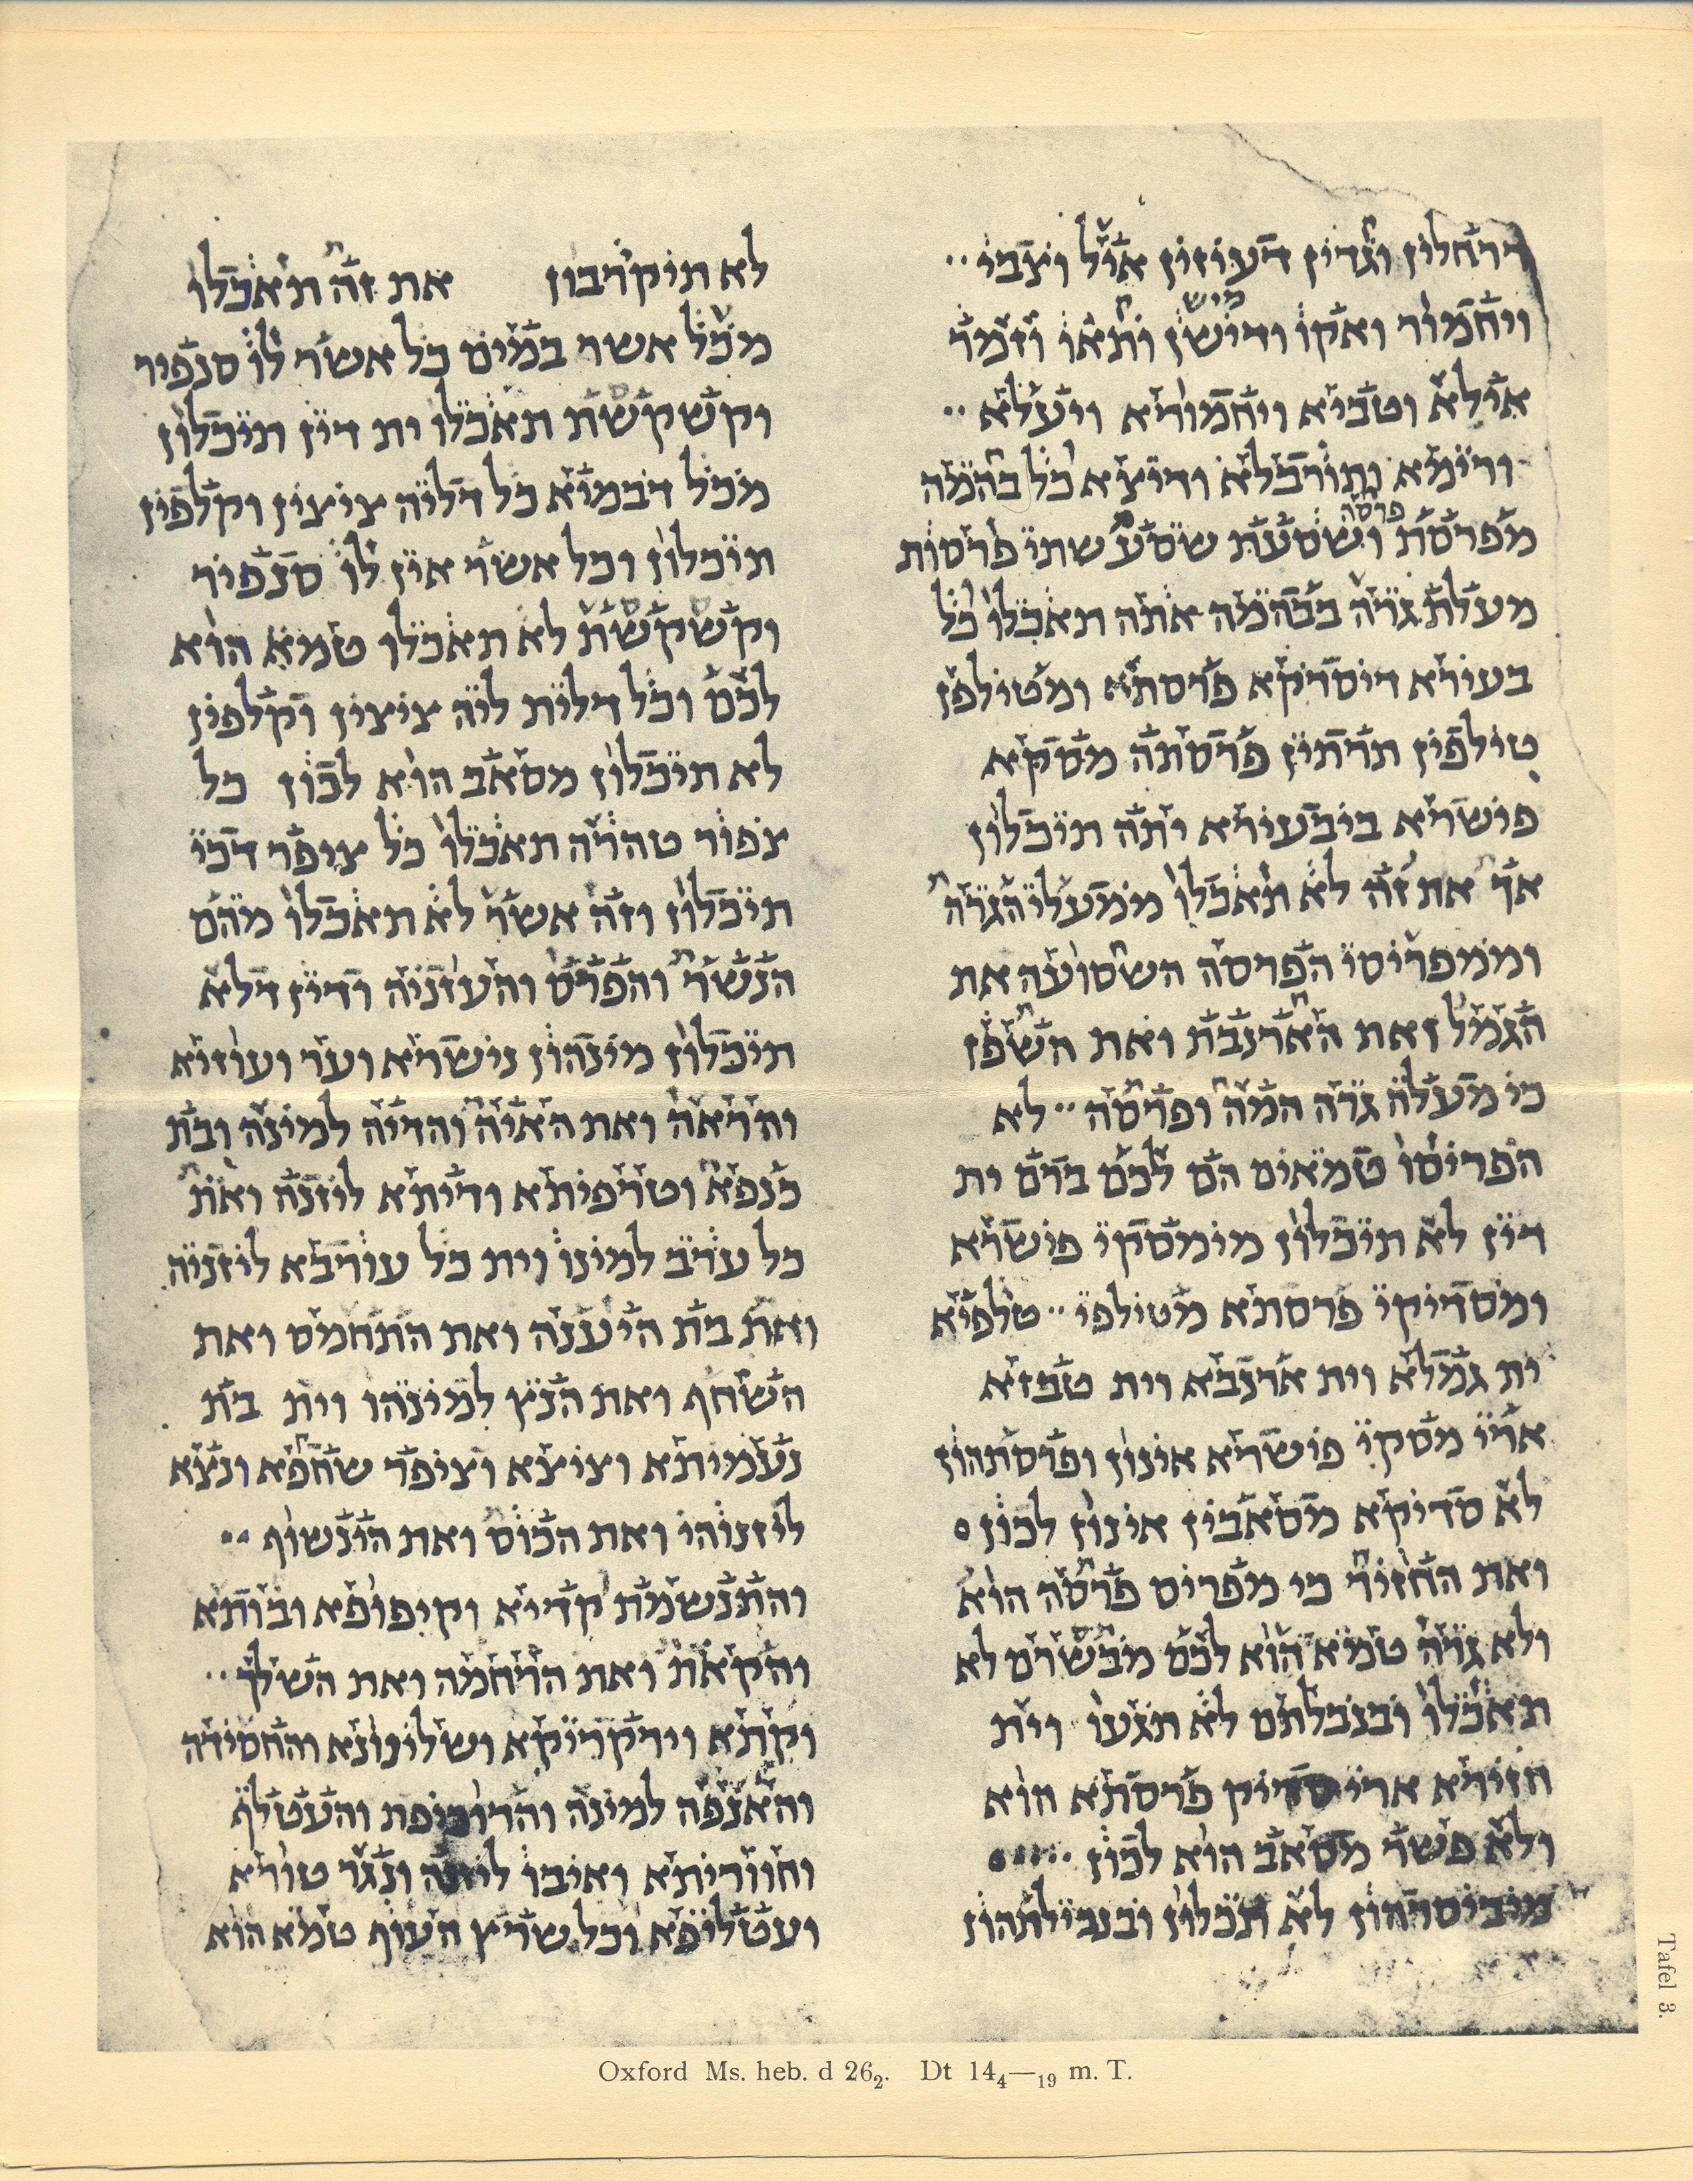 דרחלין וגדין דעיזין איל וצבי
מיש
ויחמור ואקו ודישן ותאו וזמר
אילא וטביא ויחמוריא ויעלא
ורימא ותורבלא ודיצא כל בהמה
פרסה
מפרסת ושסעת שסע שתי פרסות
מעלת גרה בבהמה אתה תאכלו כל
בעירא דיסדיקא פרסתא ומטילפן
טילפין תרתין פרסתה מסקא
פישרא ביבעירא יתה תיכלון
אך את זה לא תאכלו ממעלי הגרה
וממפריסי הפרסה השסועה את
הגמל ואת הארנבת ואת השפן
כי מעלה גרה המה ופרסה לא
הפריסו טמאים הם לכם ברם ית
דין לא תיכלון מימסקי פישרא
ומסדיקי פרסתא מטילפי טלפיא
ית גמלא וית ארנבא וית טבזא
ארי מסקי פישרא אינון ופרסתהון
לא סדיקא מסאבין אינון לכון
ואת החזיר כי מפריס פרסה הוא
ולא גרה טמא הוא לכם מבשרם לא
תאכלו ובנבלתם לא תגעו וית
חזירא ארי סדיק פרסתא הוא
ולא פשר מסאב הוא לכון
מיביסרהון לא תכלון ובנבילתהון
לא תיקרבון את זה תאכלו
מכל אשר במים כל אשר לו סנפיר
וקשקשת תאכלו ית דין תיכלון
מכל דבמיא כל דליה ציצין וקלפין
תיכלון וכל אשר אין לו סנפיר
וקשקשת לא תאכלו טמא הוא
לכם וכל דלית ליה ציצין וקלפין
לא תיכלון מסאב הוא לכון כל
צפור טהרה תאכלו כל ציפר דכי
תיכלון וזה אשר לא תאכלו מהם
הנשר והפרס והעזניה ודין דלא
תיכלון מינהון נישריא וער ועוזיא
והראה ואת האיה והדיה למינה ובת
כנפא וטרפיתא ודיתא ליזנה ואת
כל ערב למינו וית כל עורבא ליזניה
ואת בת היענה ואת התחמס ואת
השחף ואת הנץ למינהו וית בת
נעמיתא וציצא וציפר שחפא ונצא
ליזנוהי ואת הכוס ואת הינשוף
והתנשמת קדיא וקיפופא ובותא
והקאת ואת הרחמה ואת השלך
וקתא וירקריקא ושלינונא והחסידה
והאנפה למינה והדוכיפת והעטלף
וחווריתא ואיבו ליזנה ונגר טורא
ועטליפא וכל שרץ העוף טמא הוא
Tafel 3.
Oxford Ms. heb. d 26₂. Dt 14₄—₁₉ m. T.